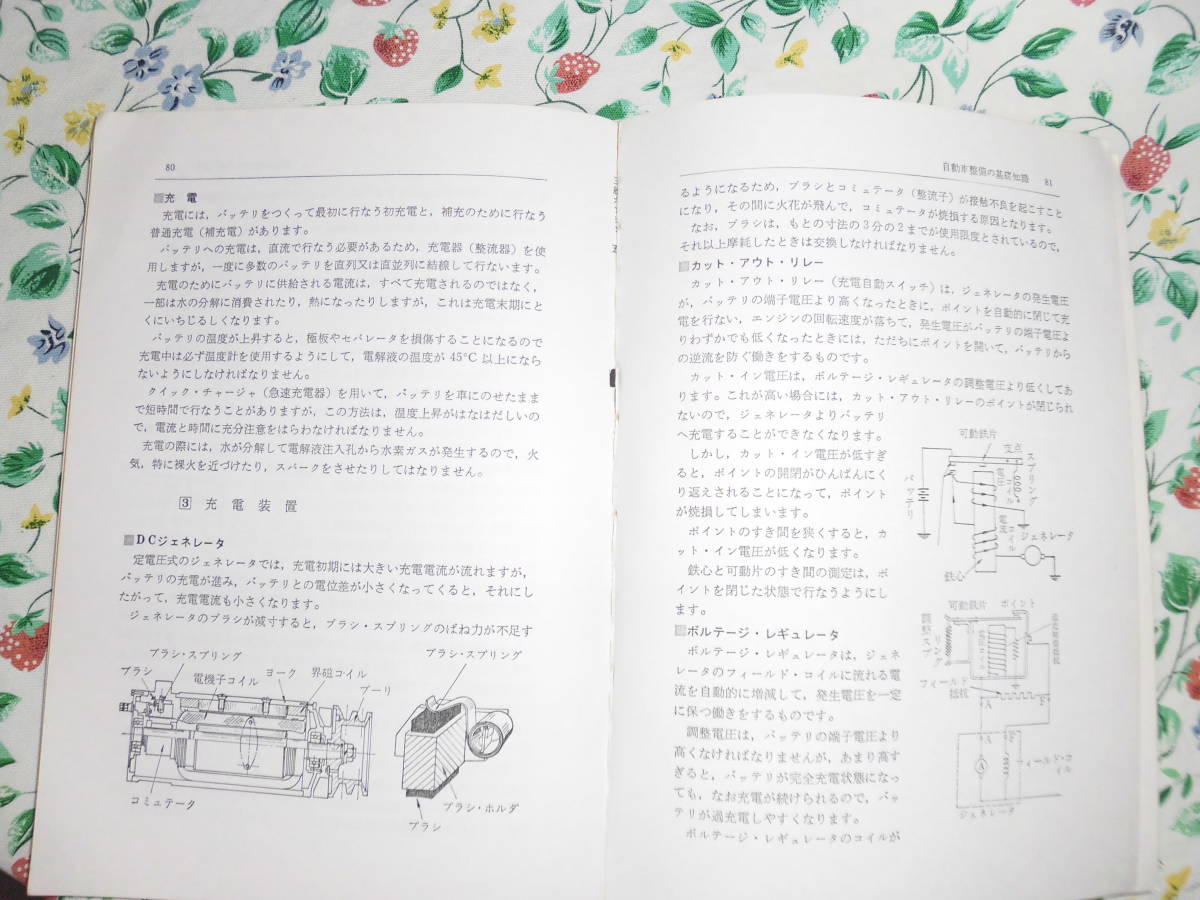 80
■充電
充電には，バッテリをつくって最初に行なう初充電と，補充のために行なう
普通充電（補充電）があります。
バッテリへの充電は，直流で行なう必要があるため，充電器（整流器）を使
用しますが，一度に多数のバッテリを直列又は直並列に結線して行ないます。
充電のためにバッテリに供給される電流は，すべて充電されるのではなく，
一部は水の分解に消費されたり，熱になったりしますが，これは充電末期にと
くにいちじるしくなります。
バッテリの温度が上昇すると，極板やセパレータを損傷することになるので
充電中は必ず温度計を使用するようにして，電解液の温度が 45°C 以上になら
ないようにしなければなりません。
クイック・チャージャ（急速充電器）を用いて，バッテリを車にのせたまま
で短時間で行なうことがありますが，この方法は，温度上昇がはなはだしいの
で，電流と時間に充分注意をはらわなければなりません。
充電の際には，水が分解して電解液注入孔から水素ガスが発生するので，火
気，特に裸火を近づけたり，スパークをさせたりしてはなりません。
3 充電装置
■DCジェネレータ
定電圧式のジェネレータでは，充電初期には大きい充電電流が流れますが，
バッテリの充電が進み，バッテリとの電位差が小さくなってくると，それにし
たがって，充電電流も小さくなります。
ジェネレータのブラシが減寸すると，ブラシ・スプリングのばね力が不足す
ブラシ・スプリング
ブラシ
電機子コイル
ヨーク
界磁コイル
プーリ
コミュテータ
ブラシ・スプリング
ブラシ・ホルダ
ブラシ
自動車整備の基礎知識 81
るようになるため，ブラシとコミュテータ（整流子）が接触不良を起こすこと
になり，その間に火花が飛んで，コミュテータが焼損する原因となります。
なお，ブラシは，もとの寸法の3分の2までが使用限度とされているので，
それ以上摩耗したときは交換しなければなりません。
■カット・アウト・リレー
カット・アウト・リレー（充電自動スイッチ）は，ジェネレータの発生電圧
が，バッテリの端子電圧より高くなったときに，ポイントを自動的に閉じて充
電を行ない，エンジンの回転速度が落ちて，発生電圧がバッテリの端子電圧よ
りわずかでも低くなったときには，ただちにポイントを開いて，バッテリから
の逆流を防ぐ働きをするものです。
カット・イン電圧は，ボルテージ・レギュレータの調整電圧より低くしてあ
ります。これが高い場合には，カット・アウト・リレーのポイントが閉じられ
ないので，ジェネレータよりバッテリ
へ充電することができなくなります。
しかし，カット・イン電圧が低すぎ
ると，ポイントの開閉がひんぱんにく
り返えされることになって，ポイント
が焼損してしまいます。
ポイントのすき間を狭くすると，カ
ット・イン電圧が低くなります。
鉄心と可動片のすき間の測定は，ポ
イントを閉じた状態で行なうようにし
ます。
■ボルテージ・レギュレータ
ボルテージ・レギュレータは，ジェネ
レータのフィールド・コイルに流れる電
流を自動的に増減して，発生電圧を一定
に保つ働きをするものです。
調整電圧は，バッテリの端子電圧より
高くなければなりませんが，あまり高す
ぎると，バッテリが完全充電状態になっ
ても，なお充電が続けられるので，バッ
テリが過充電しやすくなります。
ボルテージ・レギュレータのコイルが
可動鉄片
支点
スプリング
バッテリ
電圧コイル
電流コイル
ジェネレータ
鉄心
可動鉄片
ポイント
調整スプリング
電圧コイル
フィールド
抵抗
A
F
A
F
A
フィールド・コ
イル
ジェネレータ